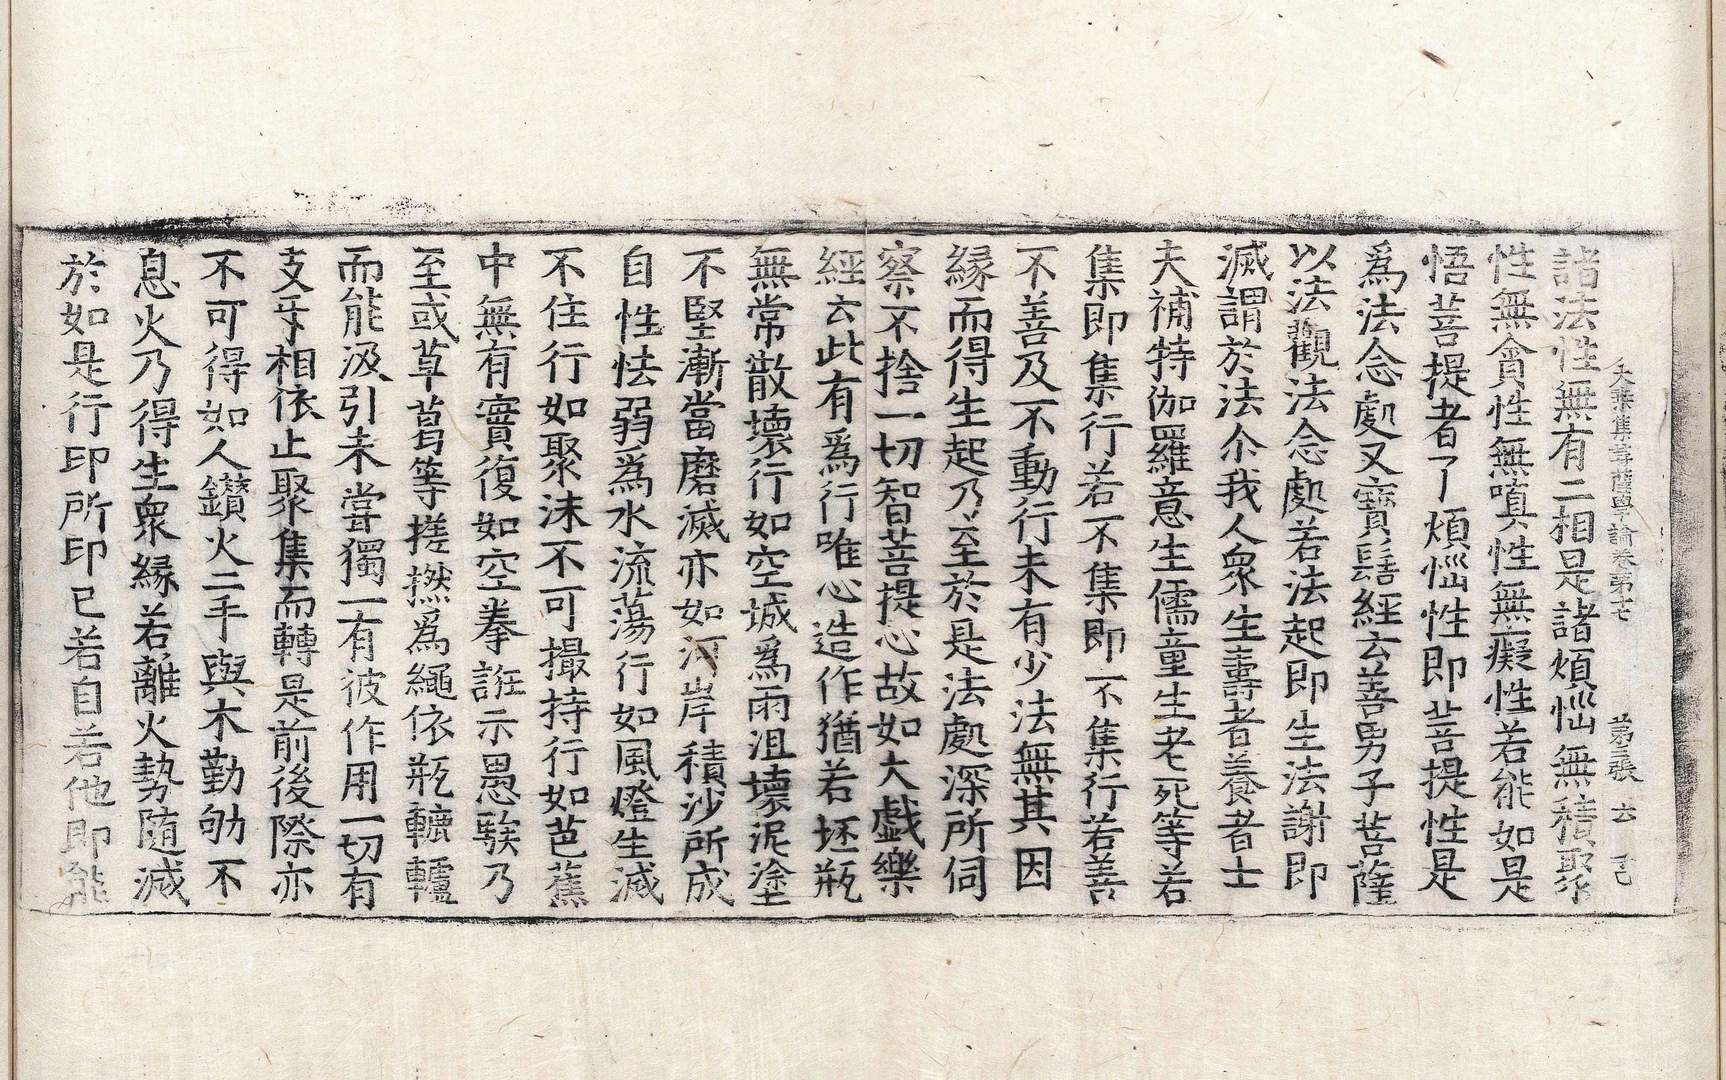 大乘集菩薩學論卷第十七 第三張 云 己
諸法性無有二相是諸煩惱無積聚
性無貪性無嗔性無癡性若能如是
悟菩提者了煩惱性即菩提性是
爲法念處又寶髻經云善男子菩薩
以法觀法念處若法起即生法謝即
滅謂於法尒我人衆生壽者養者士
夫補特伽羅意生儒童生老死等若
集即集行若不集即不集行若善
不善及不動行未有少法無其因
緣而得生起乃至於是法處深所伺
察不捨一切智菩提心故如大戲樂
經云此有爲行唯心造作猶若坯瓶
無常散壞行如空城爲雨沮壞泥塗
不堅漸當磨滅亦如河岸積沙所成
自性怯弱爲水流蕩行如風燈生滅
不住行如聚沫不可撮持行如芭蕉
中無有實復如空拳誑示愚騃乃
至或草葛等搓撚爲繩依瓶轆轤
而能汲引未嘗獨一有彼作用一切有
支㸦相依止聚集而轉是前後際亦
不可得如人鑽火二手與木勤劬不
息火乃得生衆緣若離火勢隨滅
於如是行印所印已若自若他即能